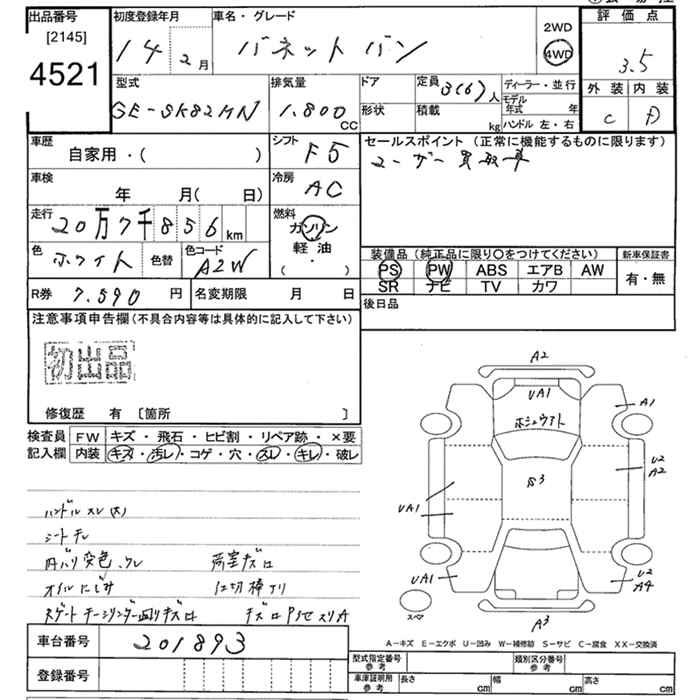 出品番号 初度登録年月 車名・グレード 2WD 評価点
[2145]
4521
14年 2月 バネットバン 4WD 3.5
型式 排気量 ドア 定員 3(6)人 ディーラー・並行 外装 内装
GE-SK82MN 1,800 CC 形状 積載 kg モデル年式 年 C D
ハンドル 左・右
車歴 自家用・( ) シフト F5 セールスポイント (正常に機能するものに限ります)
ユーザー買取車
車検 年 月( 日) 冷房 AC
走行 20万7千856km 燃料 ガソリン
軽・油
・( )
色 ホワイト 色替 色コード A2W 装備品(純正品に限り○をつけてください) 新車保証書
PS PW ABS エアB AW 有・無
SR ナビ TV カワ
R券 7,590円 名変期限 月 日 後日品
注意事項申告欄(不具合内容等は具体的に記入して下さい)
初出品
修復歴 有 [箇所 ]
検査員 FW キズ・飛石・ヒビ割・リペア跡・×要
記入欄 内装 キズ・汚レ・コゲ・穴・スレ・キレ・破レ
A2
UA1 A1
U2
A2
UA1
UA1
U2
A4
スペア
A3
ハンドルスレ(大)
内バリ変色、ワレ 荷室キズ
オイルにじみ
A-キズ E-エクボ U-凹み W-補修跡 S-サビ C-腐食 XX-交換済
車台番号 201893
登録番号
型式指定番号 参考 類別区分番号 参考
車庫証明用 参考 長さ cm 幅 cm 高さ cm